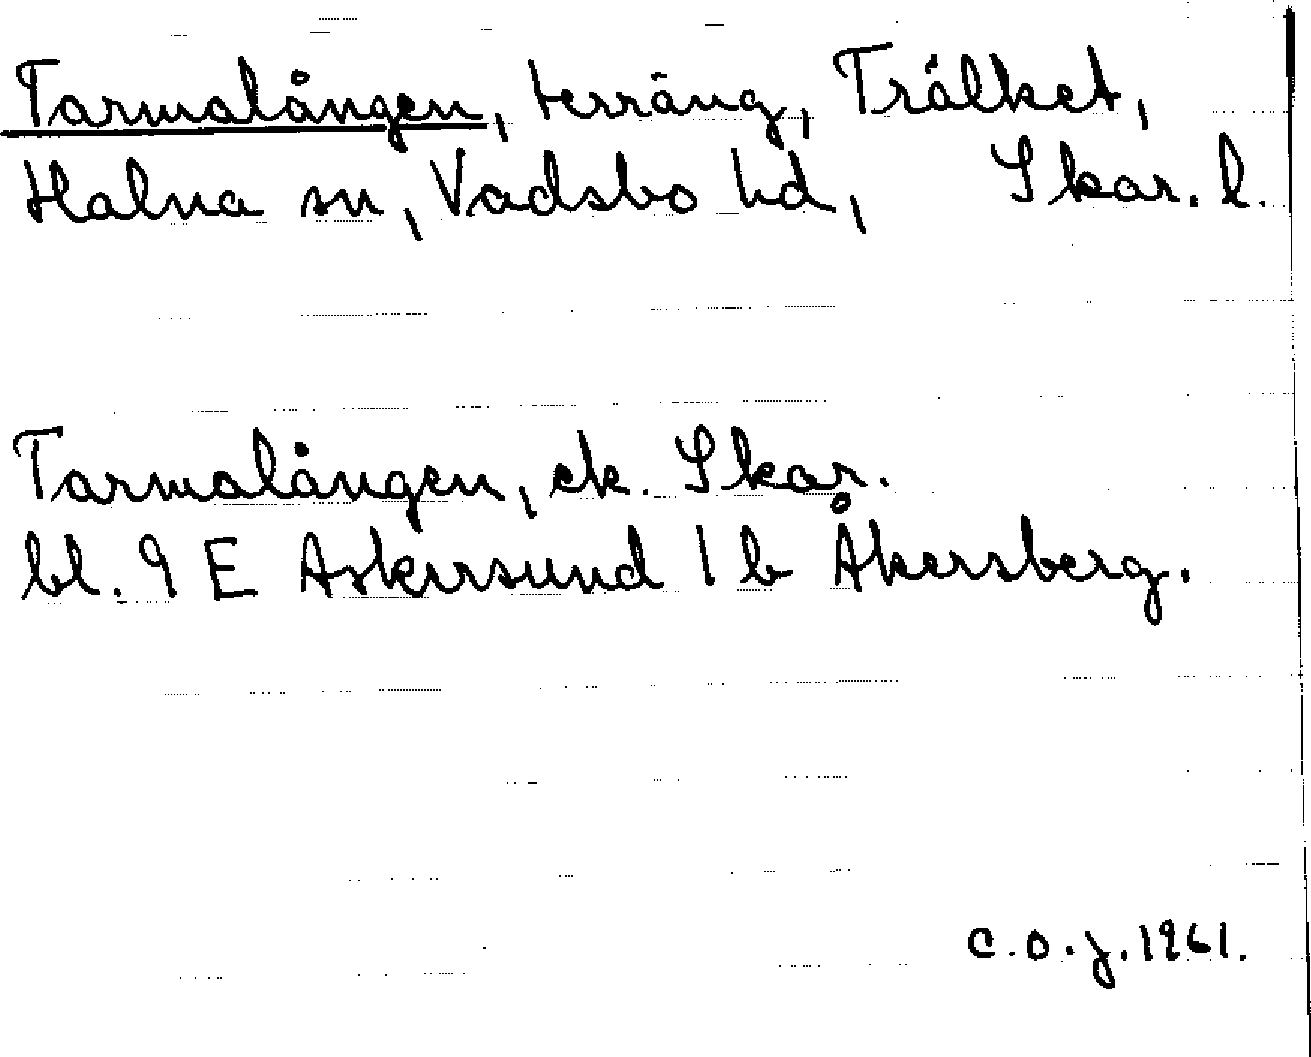 Tarmalången, terräng, Trälket,
Halna sn, Vadsbo hd, Skar. l.
Tarmalången, ek. Skar.
bl. 9 E Askersund 1 b Åkersberg.
C.O.J. 1961.